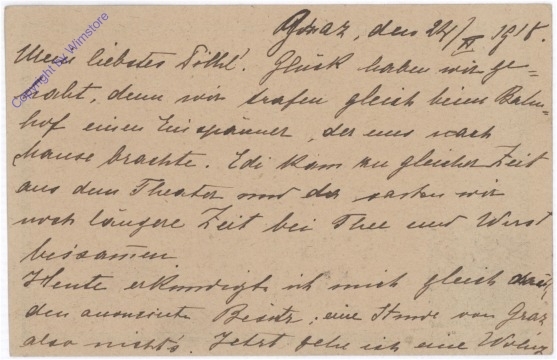 Graz, den 24/XI 1918.
Mein liebstes Tötkl! Glück haben wir ge=
habt, denn wir trafen gleich beim Bahn=
hof einen Einspänner, der uns nach
hause brachte. Edi kam zu gleicher Zeit
aus dem Theater und da sassen wir
noch längere Zeit bei Thee und Wurst
beisammen
Heute erkundigte ich mich gleich
den annoncirten Besitz, eine Stunde von Graz
also nichts. Jetzt sehe ich eine Wohng
Copyright by Wimstore